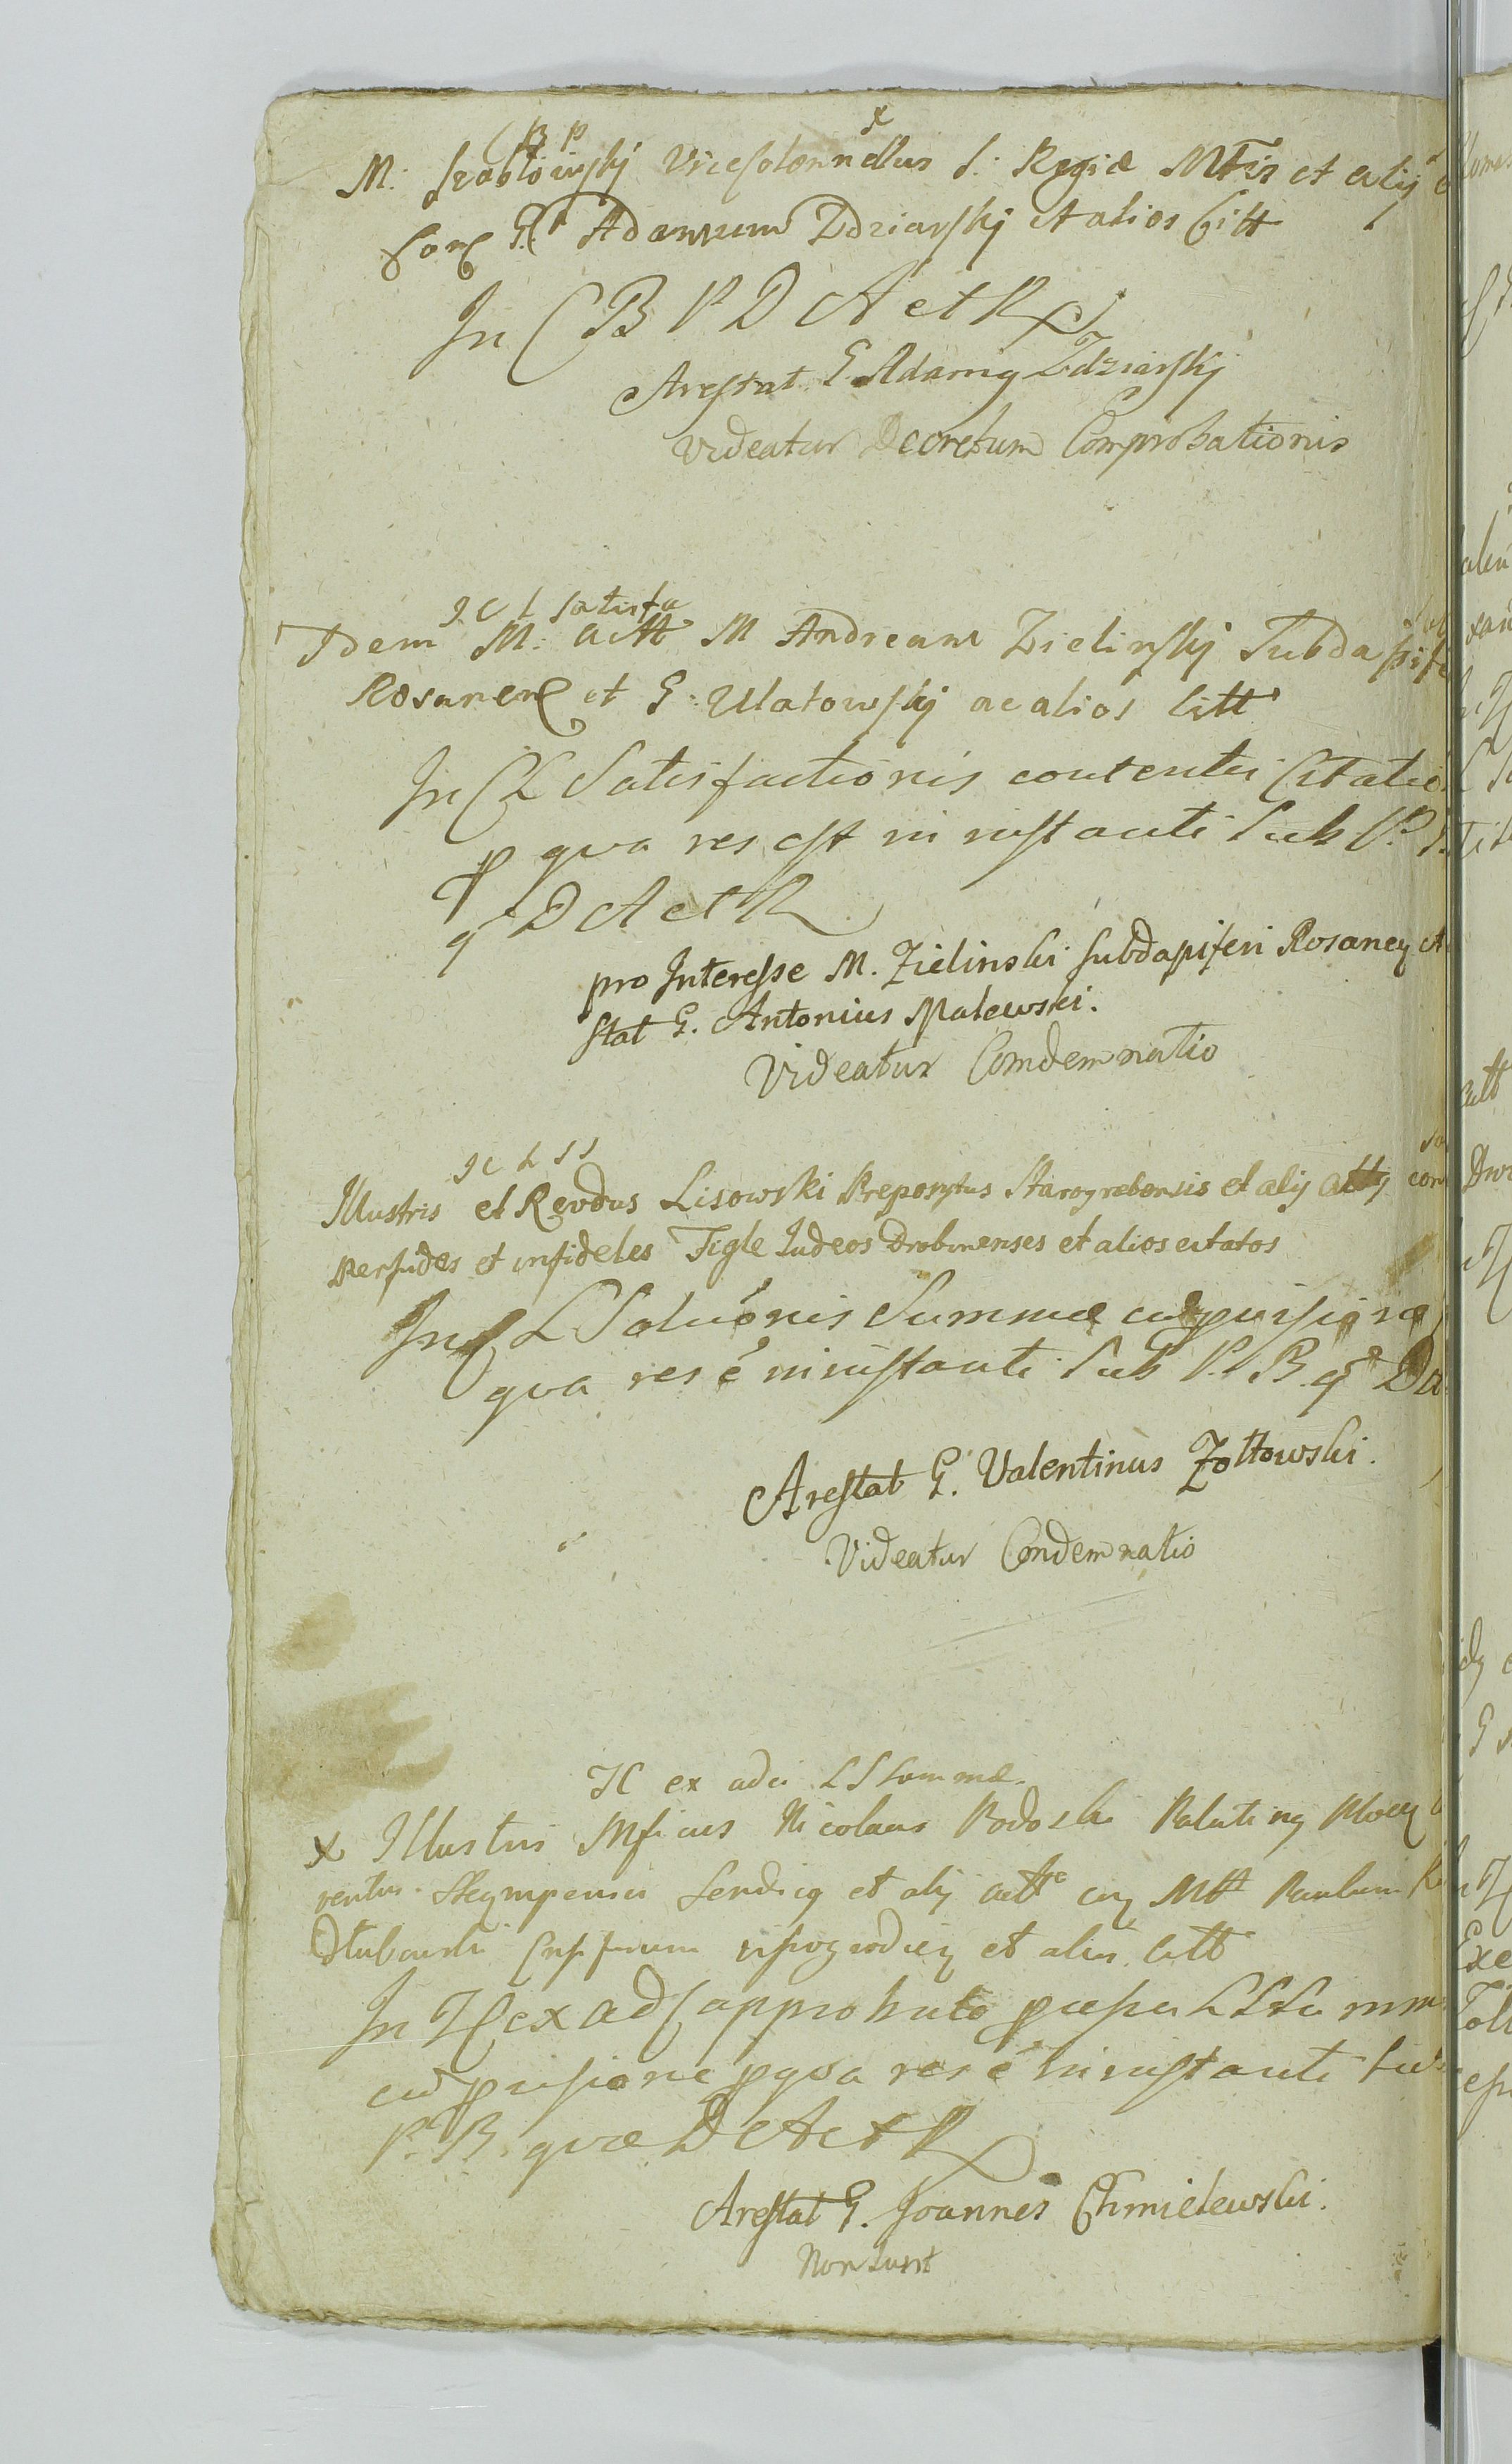 C B P
x
M: Szabłowskj Vicecolonnellus S: Regiæ MTtis et alij
Con G. Adamum Zdziarskj et alios Citt
In C B P D A et R
Arestat G. Adamq Zdziarskj
Videatur Decretum Comprobationis
J C L satisfa
Idem M: actt M Andream Zielinskj Subdapife
Rosanen et G: Ulatowskj ac alios Citt
In C L Satisfactionis contentis Citatio
p qva res est in instanti sub P.
q D A et R
pro Interesse M. Zielinski Subdapiferi Rosaneq A
stat G. Antonius Malewski.
Videatur Comdemnatio
J C L S S
Illustris et Revdus Lisowski Prepositus Starogrebensis et alij actt con
Perfides et infideles Figle Judeos Drobinenses et alios citatos
In C L Soluónis Summæ
qva res é in instanti sub P. B. q Da
Arestat G. Valentinus Zołtowski.
Videatur Condemnatio
H ex adci L S Summæ
x Illustris Mficus Nicolaus Podoski Palatinq Plocq
rentus Skempensis et alij actt cu Mtt Paulum
Dłubowski et alios Citt
In H ex ad C approbato L S Summ
cu p qva res é in instanti su
P. B. qvæ D A et R
Arestat G. Joannes Chmielewski.
Non sunt